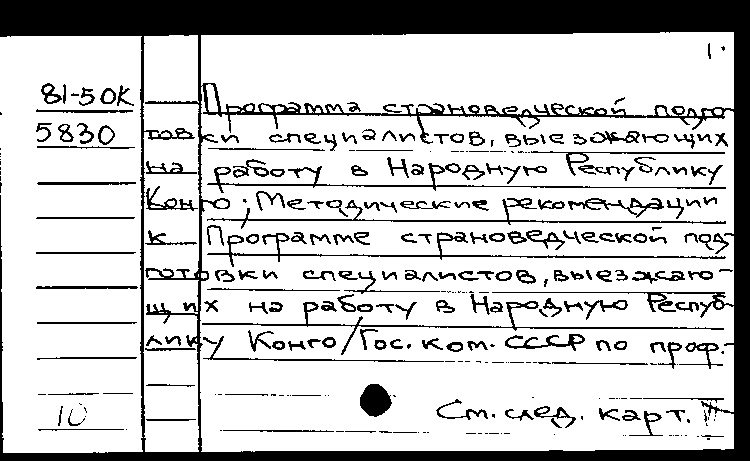 1.
81-50К Программа страноведческой подго-
5830 товки специалистов, выезжающих
на работу в Народную Республику
Конго; Методические рекомендации
к Программе страноведческой под-
готовки специалистов, выезжаю-
щих на работу в Народную Респуб-
лику Конго/Гос. ком. СССР по проф.-
10 См. след. карт.